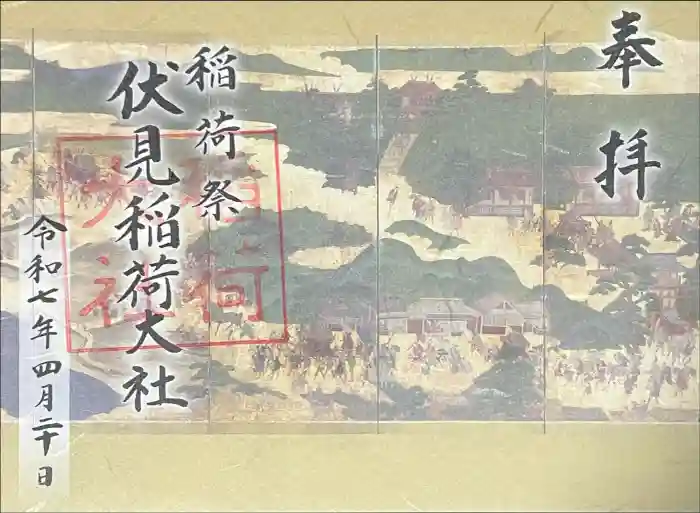 奉拝
稲荷祭
伏見稲荷大社
稲荷
大社
令和七年四月二十日